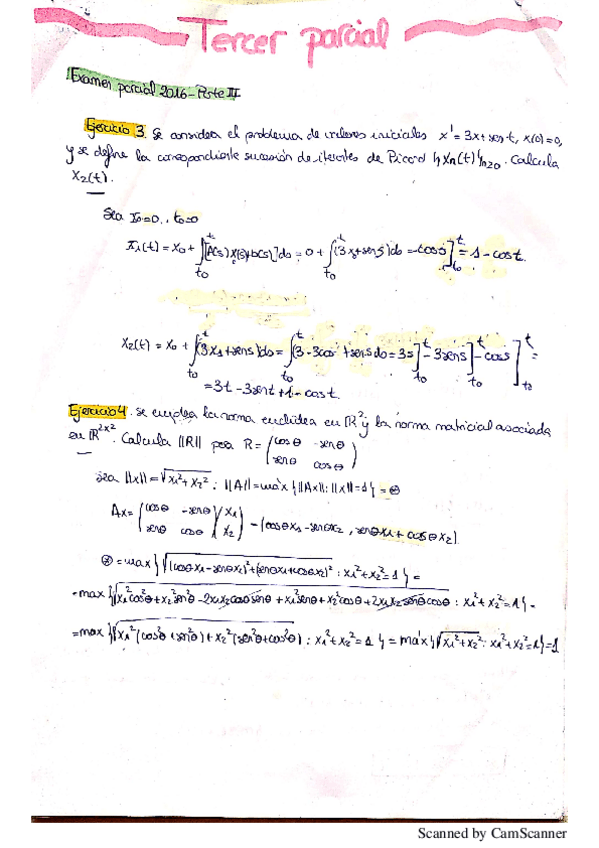 Tercer parcial
Examen parcial 2016 - Parte II
Ejercicio 3. Se considera el problema de valores iniciales x' = 3x + sen t, x(0)=0,
y se define la correspondiente sucesión de iterantes de Picard {xn(t)}n≥0. Calcula
x2(t).
Sea x0=0, t0=0
x1(t) = x0 + ∫t0^t [A(s)x(s)+b(s)]ds = 0 + ∫t0^t (3x+sen s)ds = -cos s]t0^t = 1 - cos t.
x2(t) = x0 + ∫t0^t (3x1+sen s)ds = ∫t0^t (3-3cos +sen s ds = 3s]t0^t - 3sen s]t0^t - cos s]t0^t =
= 3t - 3sen t + 1 - cos t.
Ejercicio 4. Se emplea la norma euclídea en ℝ² y la norma matricial asociada
en ℝ^2x2. Calcula ||R|| para R = (cos θ -sen θ
sen θ cos θ)
Sea ||x|| = √x1²+x2² ; ||A|| = máx {||Ax||: ||x||=1} = ⊛
Ax = (cos θ -sen θ)(x1)
(sen θ cos θ)(x2) = (cos θ x1 - sen θ x2, sen θ x1 + cos θ x2)
⊛ = max {√(cos θ x1 - sen θ x2)² + (sen θ x1 + cos θ x2)² : x1²+x2²=1} =
= max {√x1²cos²θ + x2²sen²θ - 2x1x2 cos θ sen θ + x1²sen²θ + x2²cos²θ + 2x1x2 sen θ cos θ : x1²+x2²=1} =
= max {√x1²(cos²θ + sen²θ) + x2²(sen²θ + cos²θ) : x1²+x2²=1} = máx {√x1²+x2² : x1²+x2²=1} = 1
Scanned by CamScanner